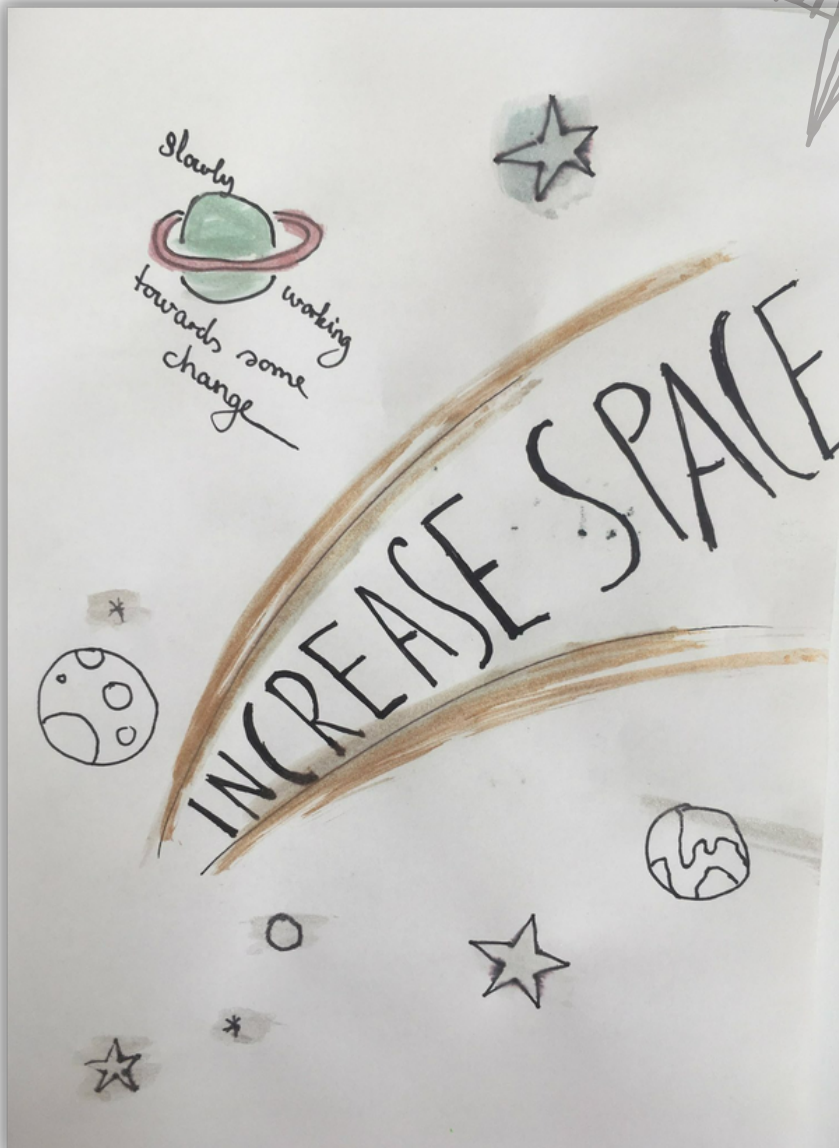 slowly
working
towards some
change
INCREASE SPACE